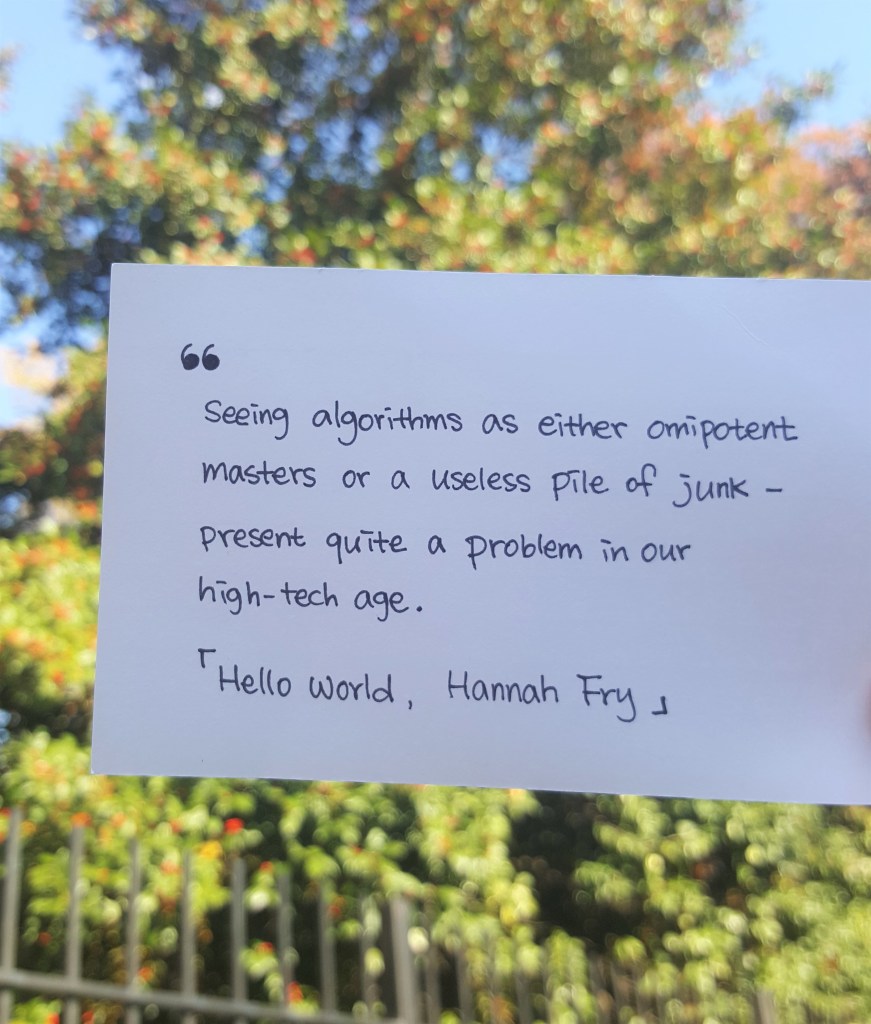 ❝
Seeing algorithms as either omipotent
masters or a useless pile of junk -
present quite a problem in our
high-tech age.
「Hello world, Hannah Fry」